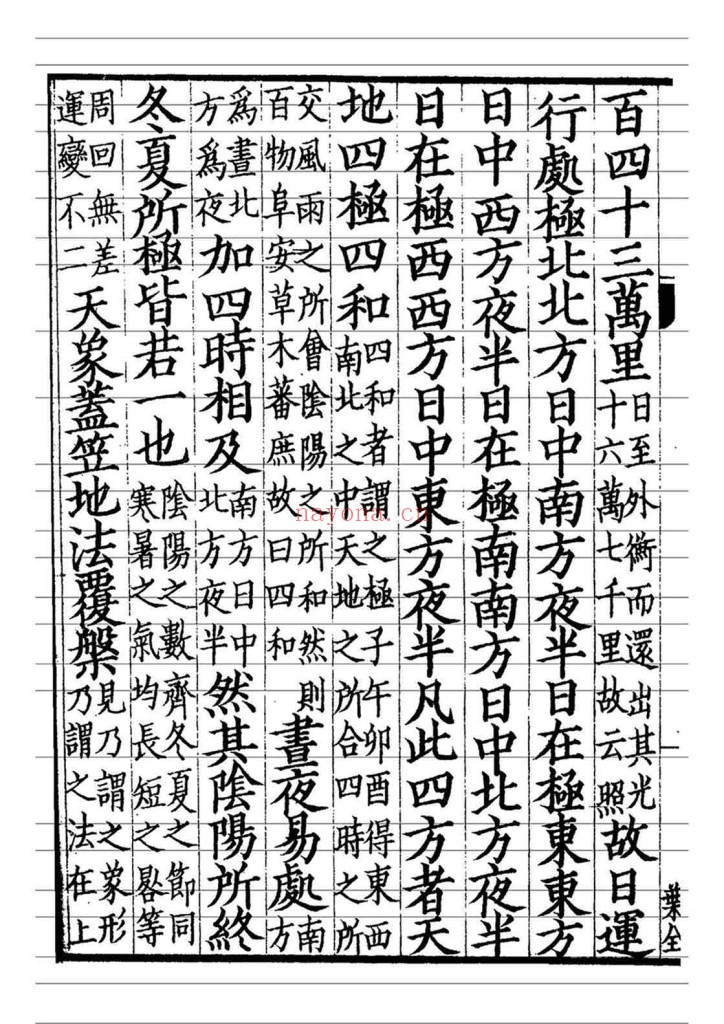 百四十三萬里日至外衡而還出其光十六萬七千里故云照故日運
行處極北北方日中南方夜半日在極東東方
日中西方夜半日在極南南方日中北方夜半
日在極西西方日中東方夜半凡此四方者天
地四極四和四和者謂之極子午卯酉得東西南北之中天地之所合四時之所
交風雨之所會陰陽之所和然則百物阜安草木蕃庶故曰四和晝夜易處南方
爲晝北方爲夜加四時相及南方日中北方夜半然其陰陽所終
冬夏所極皆若一也陰陽之數齊冬夏之節同寒暑之氣均長短之晷等
周回無差運變不二天象蓋笠地法覆槃見乃謂之象形乃謂之法在上
葉全
nayona.cn